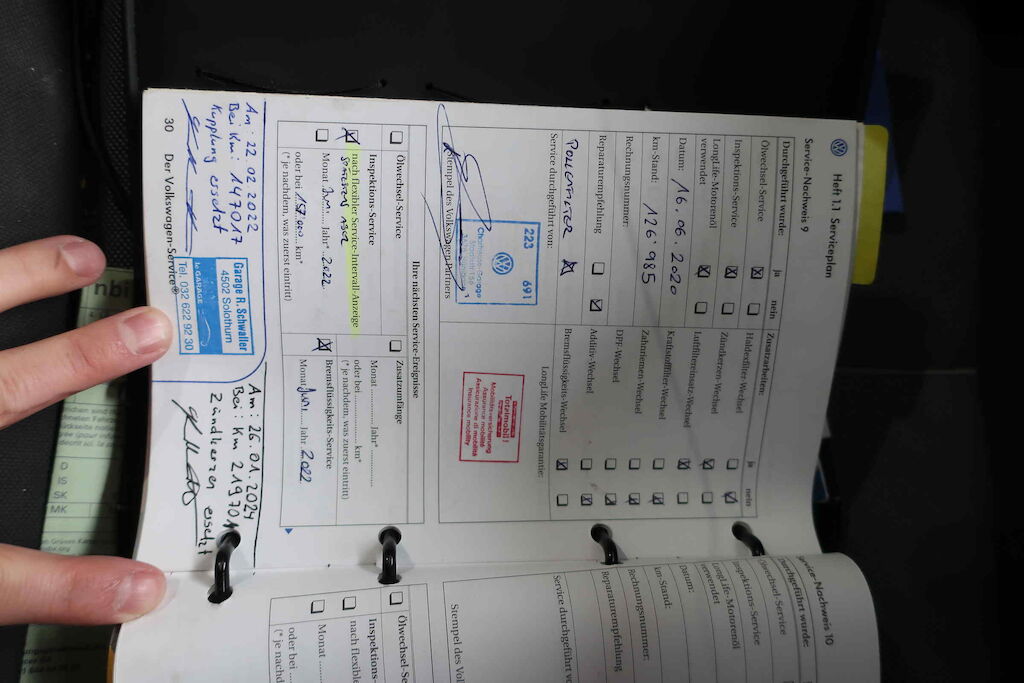 Heft 1.1 Serviceplan
Service-Nachweis 9
Durchgeführt wurde: ja nein
Ölwechsel-Service
Inspektions-Service
LongLife-Motorenöl
verwendet
Datum: 16.06.2020
km-Stand: 126'985
Rechnungsnummer:
Reparaturempfehlung
POLLENFILTER
Service durchgeführt von:
223 691
Stempel des Volkswagen Partners
Zusatzarbeiten: ja nein
Haldexfilter-Wechsel
Zündkerzen-Wechsel
Luftfiltereinsatz-Wechsel
Kraftstofffilter-Wechsel
Zahnriemen-Wechsel
DPF-Wechsel
Additiv-Wechsel
Bremsflüssigkeits-Wechsel
LongLife Mobilitätsgarantie:
Totalmobil!
Mobilitätsversicherung
Assurance mobilité
Assicurazione di mobilità
Insurance mobility
Ihre nächsten Service-Ereignisse
Ölwechsel-Service
Inspektions-Service
nach flexibler Service-Intervall-Anzeige
Monat Juni Jahr* 2022
oder bei 157.000 km*
(* je nachdem, was zuerst eintritt)
Zusatzumfänge
Monat Jahr*
oder bei km*
(* je nachdem, was zuerst eintritt)
Bremsflüssigkeits-Service
Monat Juni Jahr 2022
Am: 22.02.2022
Bei Km: 147017
Kupplung ersetzt
Garage R. Schwaller
4502 Solothurn
le GARAGE
Tel. 032 622 92 30
Am: 26.01.2024
Bei: Km 219701
Zündkerzen ersetzt
30 Der Volkswagen-Service®
Service-Nachweis 10
Durchgeführt wurde:
Ölwechsel-Service
Inspektions-Service
LongLife-Motorenöl
verwendet
Datum:
km-Stand:
Rechnungsnummer:
Reparaturempfehlung
Service durchgeführt v
Stempel des Vol
Ölwechsel-Se
Inspektions-
nach flexible
Monat
oder bei
(* je nachd
nbi
D
IS
SK
MK